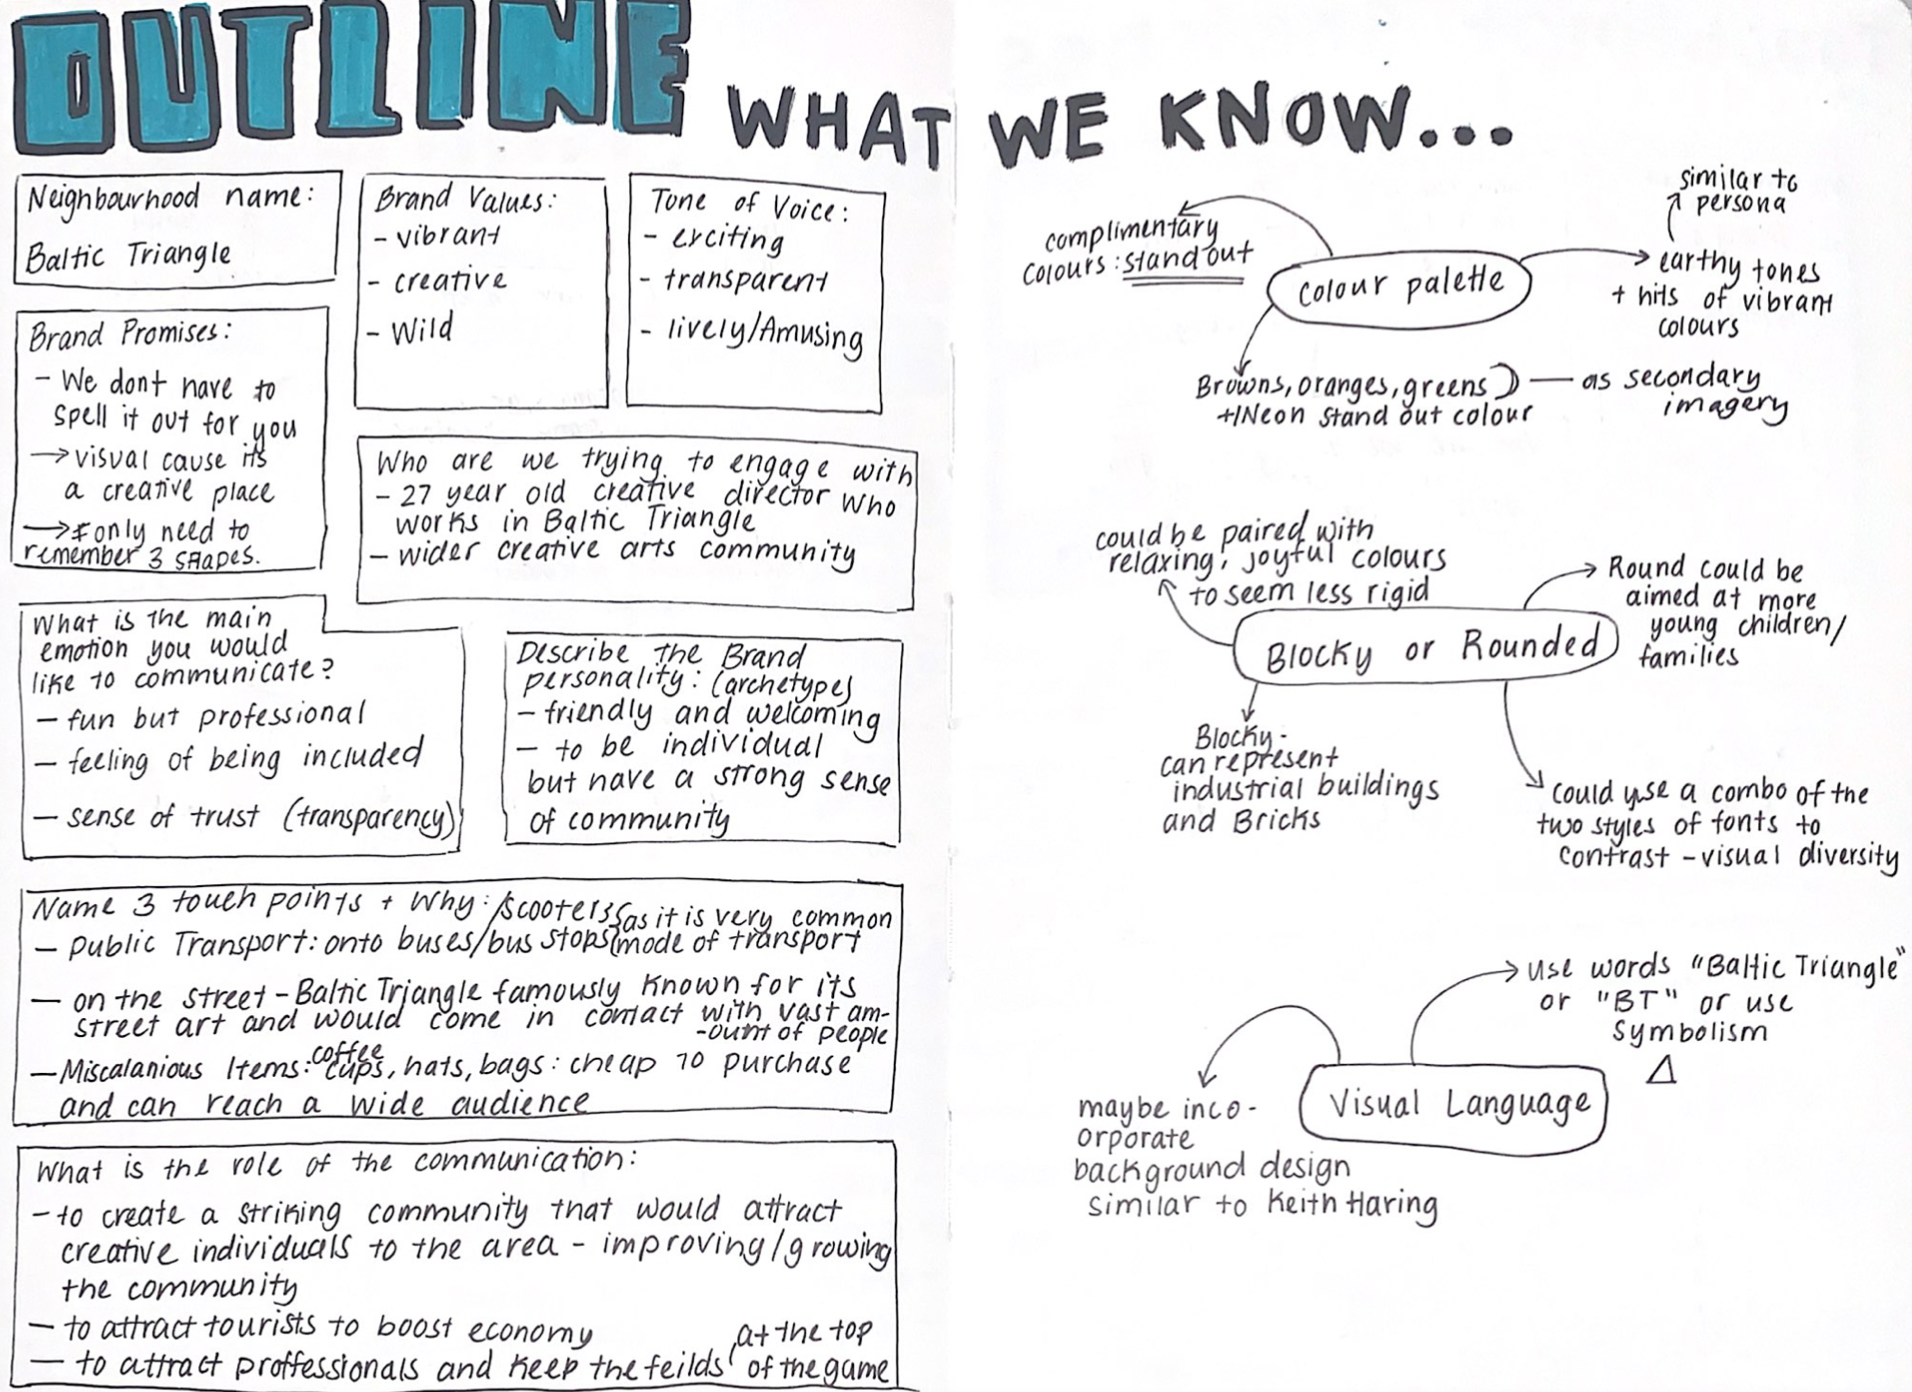 OUTLINE
WHAT WE KNOW...
Neighbourhood name:
Baltic Triangle
Brand Values:
- vibrant
- creative
- Wild
Tone of Voice:
- exciting
- transparent
- lively/Amusing
Brand Promises:
- We dont have to
spell it out for you
→ visual cause its
a creative place
→ only need to
remember 3 shapes.
Who are we trying to engage with
- 27 year old creative director who
works in Baltic Triangle
- wider creative arts community
What is the main
emotion you would
like to communicate?
- fun but professional
- feeling of being included
- sense of trust (transparency)
Describe the Brand
personality: (archetype)
- friendly and welcoming
- to be individual
but have a strong sense
of community
Name 3 touch points + Why: /scooters as it is very common
- public Transport: onto buses/bus stops mode of transport
- on the street - Baltic Triangle famously known for its
street art and would come in contact with vast am-
-ount of people
- Miscalanious Items: coffee cups, hats, bags: cheap to purchase
and can reach a wide audience
What is the role of the communication:
- to create a striking community that would attract
creative individuals to the area - improving/growing
the community
- to attract tourists to boost economy
- to attract proffessionals and keep the feilds at the top
of the game
Colour palette
complimentary
colours: stand out
similar to
persona
earthy tones
+ hits of vibrant
colours
Browns, oranges, greens
+/Neon stand out colour
- as secondary
imagery
Blocky or Rounded
could be paired with
relaxing, joyful colours
to seem less rigid
Round could be
aimed at more
young children/
families
Blocky -
can represent
industrial buildings
and Bricks
could use a combo of the
two styles of fonts to
contrast - visual diversity
Visual Language
use words "Baltic Triangle"
or "BT" or use
symbolism
△
maybe inco-
orporate
background design
similar to Keith Haring